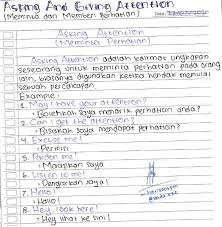 Asking And Giving Attention
(Meminta dan Memberi Perhatian)
Asking Attention
(Meminta Perhatian)
Asking Attention adalah kalimat ungkapan
seseorang untuk meminta perhatian pada orang
lain, biasanya digunakan ketika hendak memulai
sebuah percakapan.
Example :
1. May I have your attention?
- Bolehkah saya menarik perhatian anda?
2. Can I get the attention?
- Bisakah saya mendapat perhatian?
4. Excuse me!
- Permisi
5. Pardon me!
- Maafkan saya
6. Listen to me!
- Dengarkan saya!
7. Hello!
- Hallo!
8. Hey, look here!
- Hey lihat ke sini!